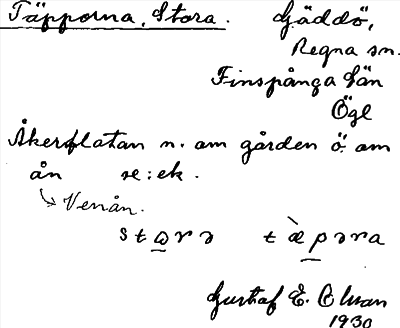 Täpporna, Stora. Gäddö,
Regna sn.
Finspånga län
Ögl
Åkerflatan n. om gården ö. om
ån se: ek.
Venån.
stωrə t æ̀pərna
Gustaf E. Olsson
1930